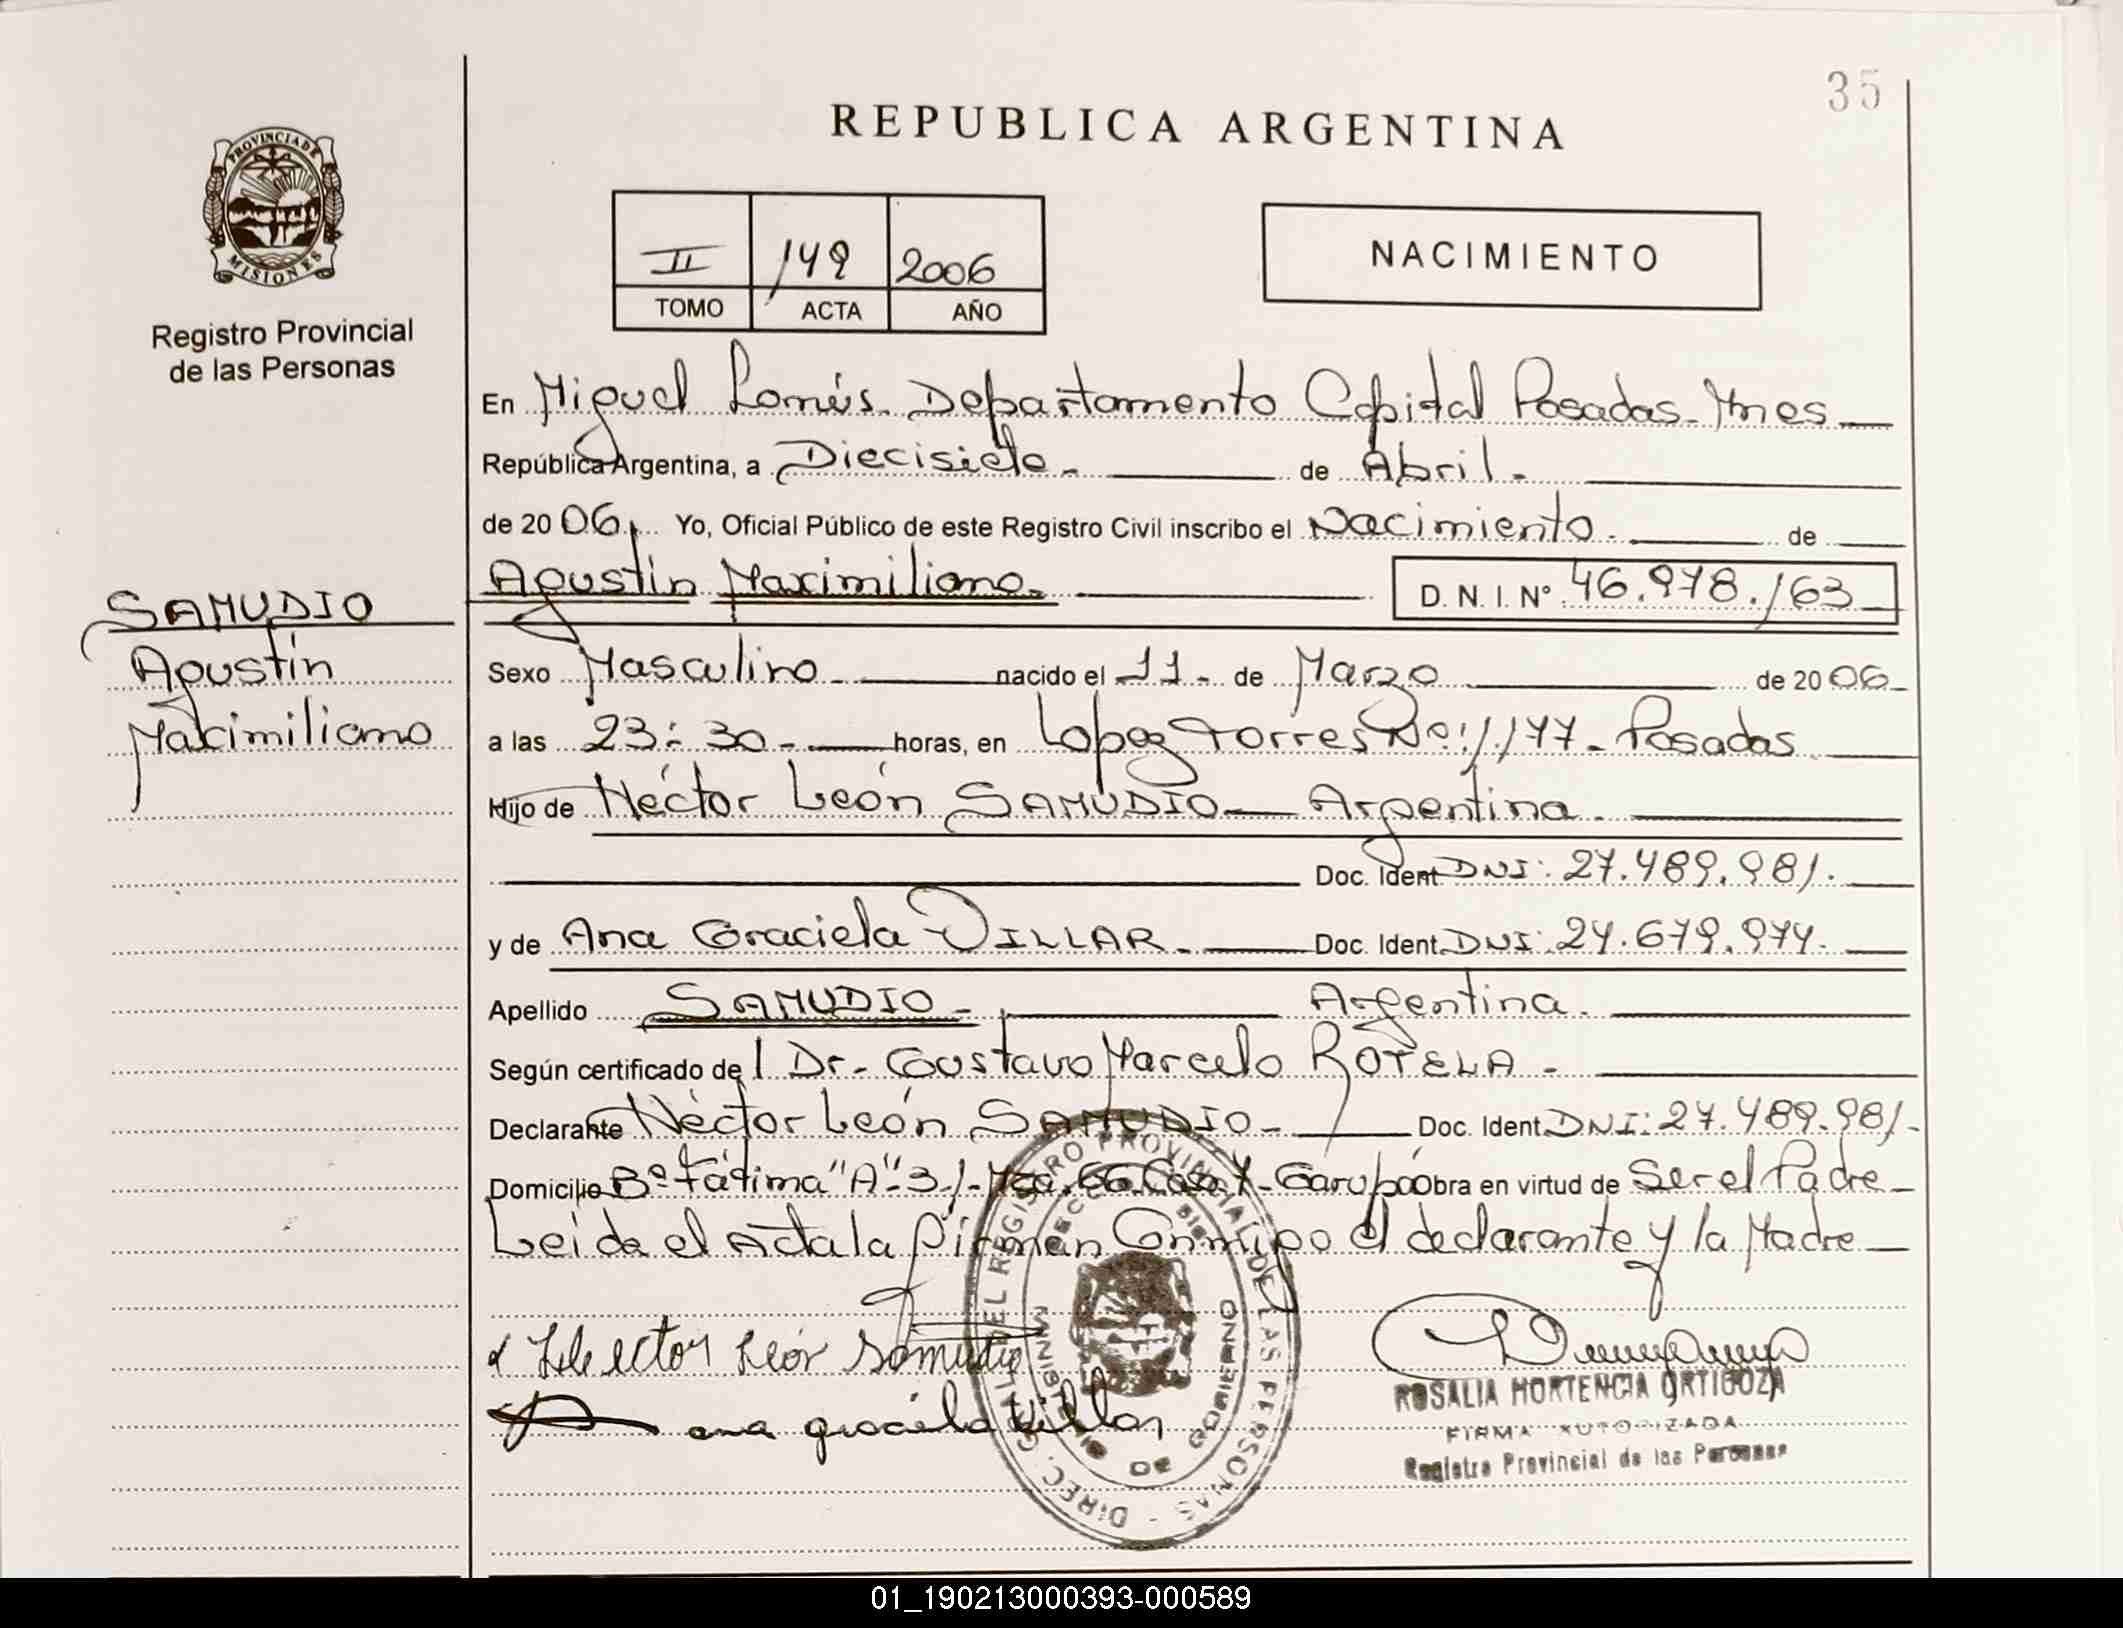 35
REPUBLICA ARGENTINA
PROVINCIA DE
MISIONES
Registro Provincial
de las Personas
II 149 2006
TOMO ACTA AÑO
NACIMIENTO
En Miguel Lanús. Departamento Capital Posadas- Mnes
República Argentina, a Diecisiete. de Abril.
de 2006. Yo, Oficial Público de este Registro Civil inscribo el Nacimiento. de
Agustín Maximiliano. D. N. I. Nº 46.978.163
SAMUDIO
Agustín
Maximiliano
Sexo Masculino nacido el 11. de Marzo de 2006
a las 23:30 horas, en Lopez Torres Nº: 1.177- Posadas
Hijo de Héctor León SAMUDIO Argentina.
Doc. Ident DNI: 27.489.981.
y de Ana Graciela VILLAR. Doc. Ident. DNI: 24.679.974.
Apellido SAMUDIO- Argentina.
Según certificado del Dr. Gustavo Marcelo ROTELA.
Declarante Héctor León SAMUDIO- Doc. Ident. DNI: 27.489.981.
Domicilio Bº Fátima "A" 3 Garupá Obra en virtud de Ser el Padre
Leida el Acta la firman Conmigo el declarante y la Madre
Hector León Samudio
ana graciela Villar
ROSALIA HORTENCIA ORTIGOZA
FIRMA AUTORIZADA
Registro Provincial de las Personas
DIREC. GRAL. DEL REGISTRO PROVINCIAL DE LAS PERSONAS
DE GOBIERNO
01_190213000393-000589